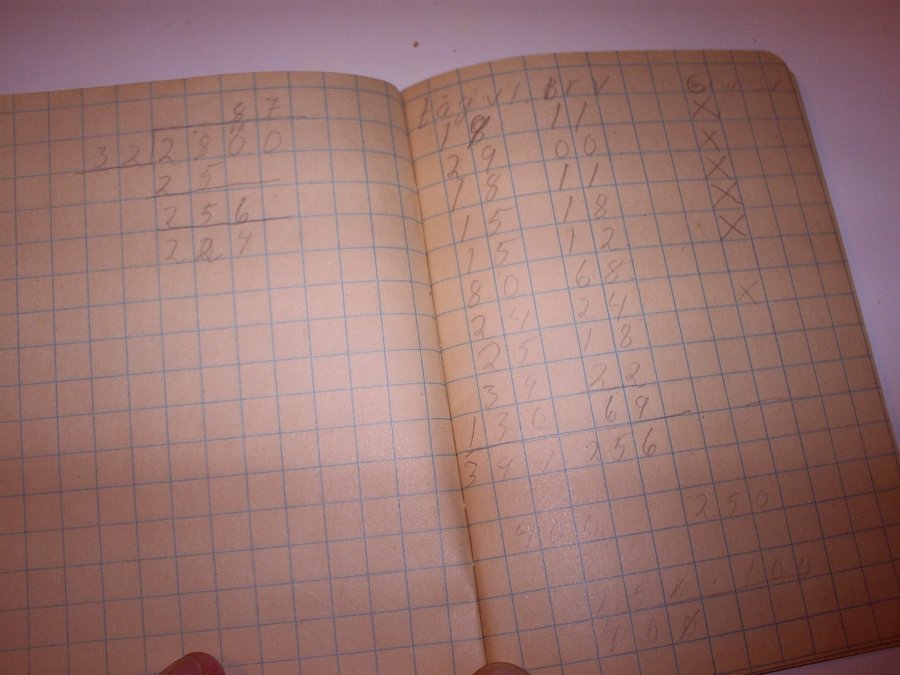 87
32 2800
25
256
224
Brv
18 11 X
29 00 X
18 11 X
15 18 X
15 12 X
80 68
24 24 X
25 18
39 22
130 69
256
250
100
400